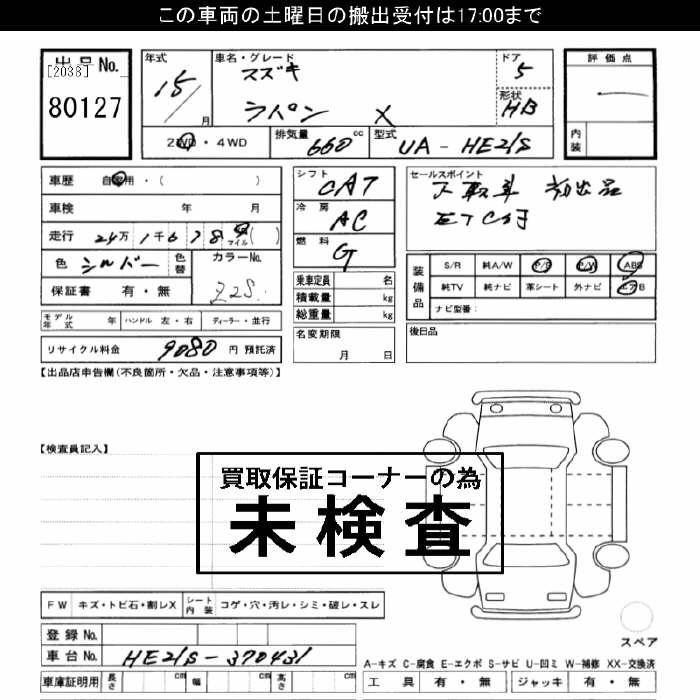 この車両の土曜日の搬出受付は17:00まで
出品No.
[2038]
80127
年式
15
月
車名・グレード
スズキ
ラパン X
ドア
5
形状
HB
評価点
内装
2WD・4WD
排気量 660 cc
型式 UA-HE21S
車歴 自家用・( )
車検 年 月
走行 24万1千6 7 8 マイル( )
色 シルバー 色替
カラーNo.
Z2S
保証書 有・無
モデル年式 年 ハンドル 左・右 ディーラー・並行
リサイクル料金 9080 円 預託済
シフト
CAT
冷房
AC
燃料
G
乗車定員 名
積載量 kg
総重量 kg
名変期限
月 日
セールスポイント
下取車 初出品
ETC付
装備品
S/R 純A/W P/S P/W ABS
純TV 純ナビ 革シート 外ナビ エアB
ナビ型番:
後日品
【出品店申告欄(不良箇所・欠品・注意事項等)】
【検査員記入】
買取保証コーナーの為
未検査
FW キズ・トビ石・割レX シート内装 コゲ・穴・汚レ・シミ・破レ・スレ
登録No.
車台No. HE21S-370431
車庫証明用 長さ cm 幅 cm 高さ cm
スペア
A-キズ C-腐食 E-エクボ S-サビ U-凹ミ W-補修 XX-交換済
工具 有・無 ジャッキ 有・無